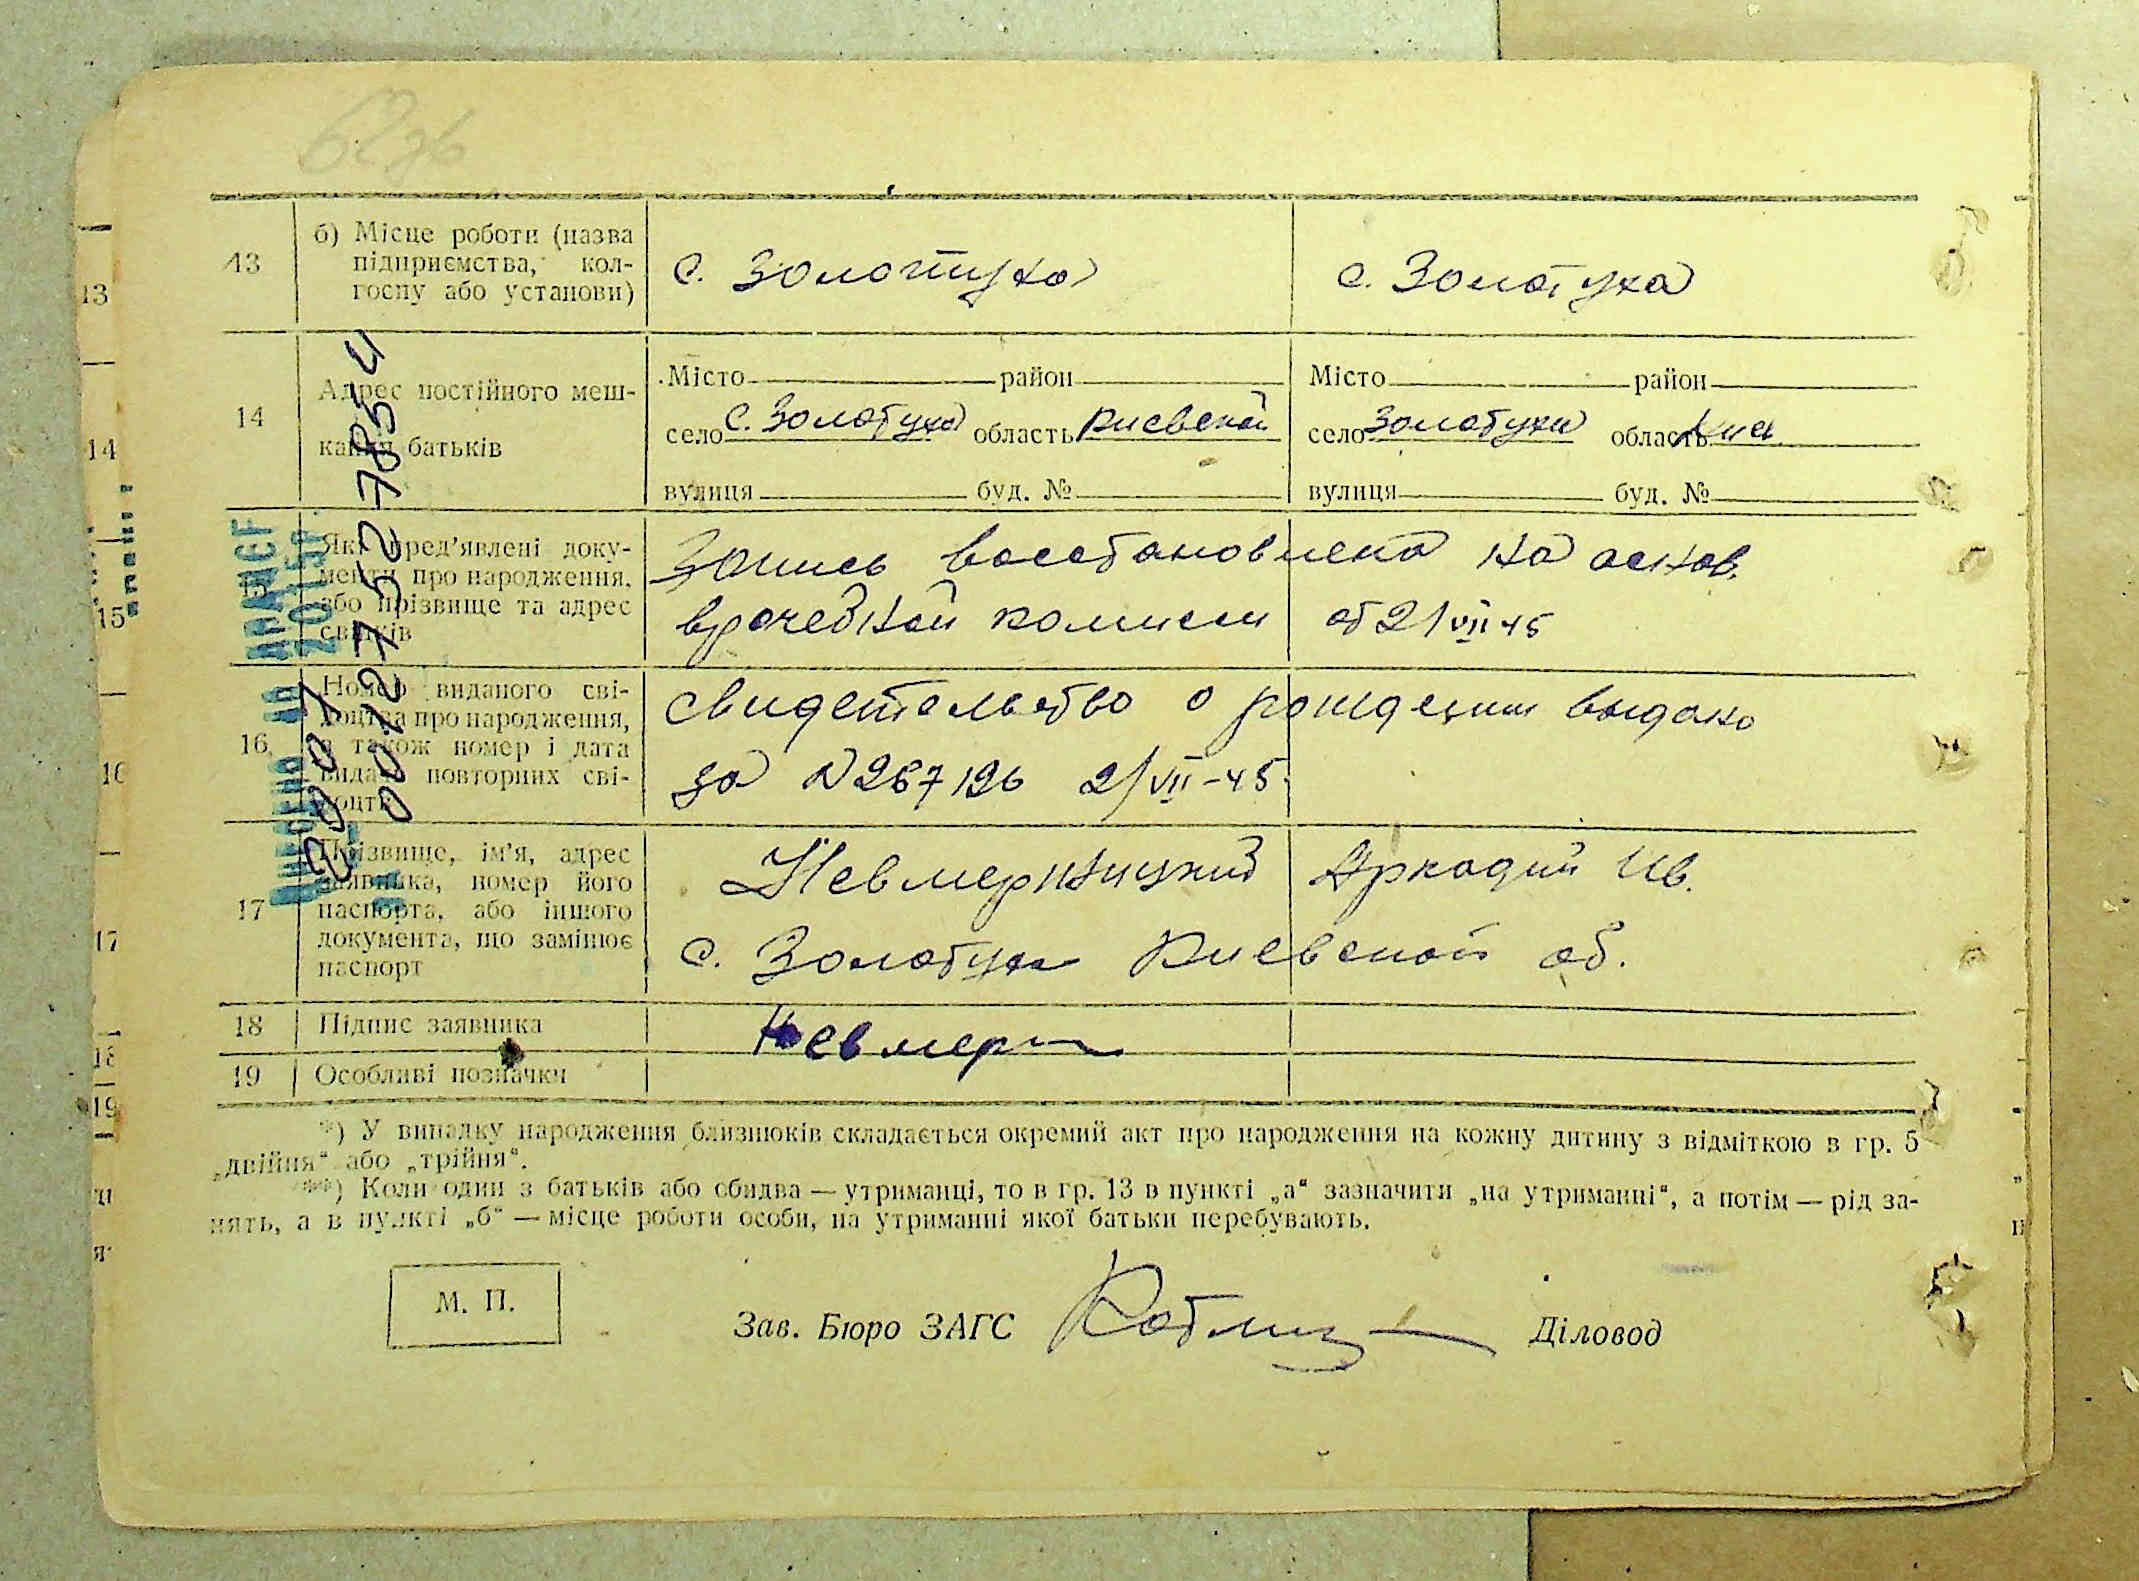 13
б) Місце роботи (назва
підприємства, кол-
госпу або установи)
с. Золотуха
с. Золотуха
14
Адрес постійного меш-
кання батьків
Місто район
село с. Золотуха область Киевской
вулиця буд. №
Місто район
село Золотуха область Киев
вулиця буд. №
Які пред'явлені доку-
менти про народження,
або прізвище та адрес
свідків
Запись восстановлена на основ.
врачебной комисии от 2/VII 45
16
Номер виданого сві-
доцтва про народження,
а також номер і дата
видачі повторних сві-
доцтв
свидетельство о рождении выдано
за N 267196 2/VII-45
17
Прізвище, ім'я, адрес
заявника, номер його
паспорта, або іншого
документа, що замінює
паспорт
Невмержицкий Аркадий Ив.
с. Золотуха Киевской об.
18
Підпис заявника
Невмерж
19
Особливі позначки
*) У випадку народження близнюків складається окремий акт про народження на кожну дитину з відміткою в гр. 5
„двійня“ або „трійня“.
**) Коли один з батьків або обидва — утриманці, то в гр. 13 в пункті „а“ зазначити „на утриманні“, а потім — рід за-
нять, а в пункті „б“ — місце роботи особи, на утриманні якої батьки перебувають.
М. П.
Зав. Бюро ЗАГС
Діловод
13
14
15
16
17
18
19